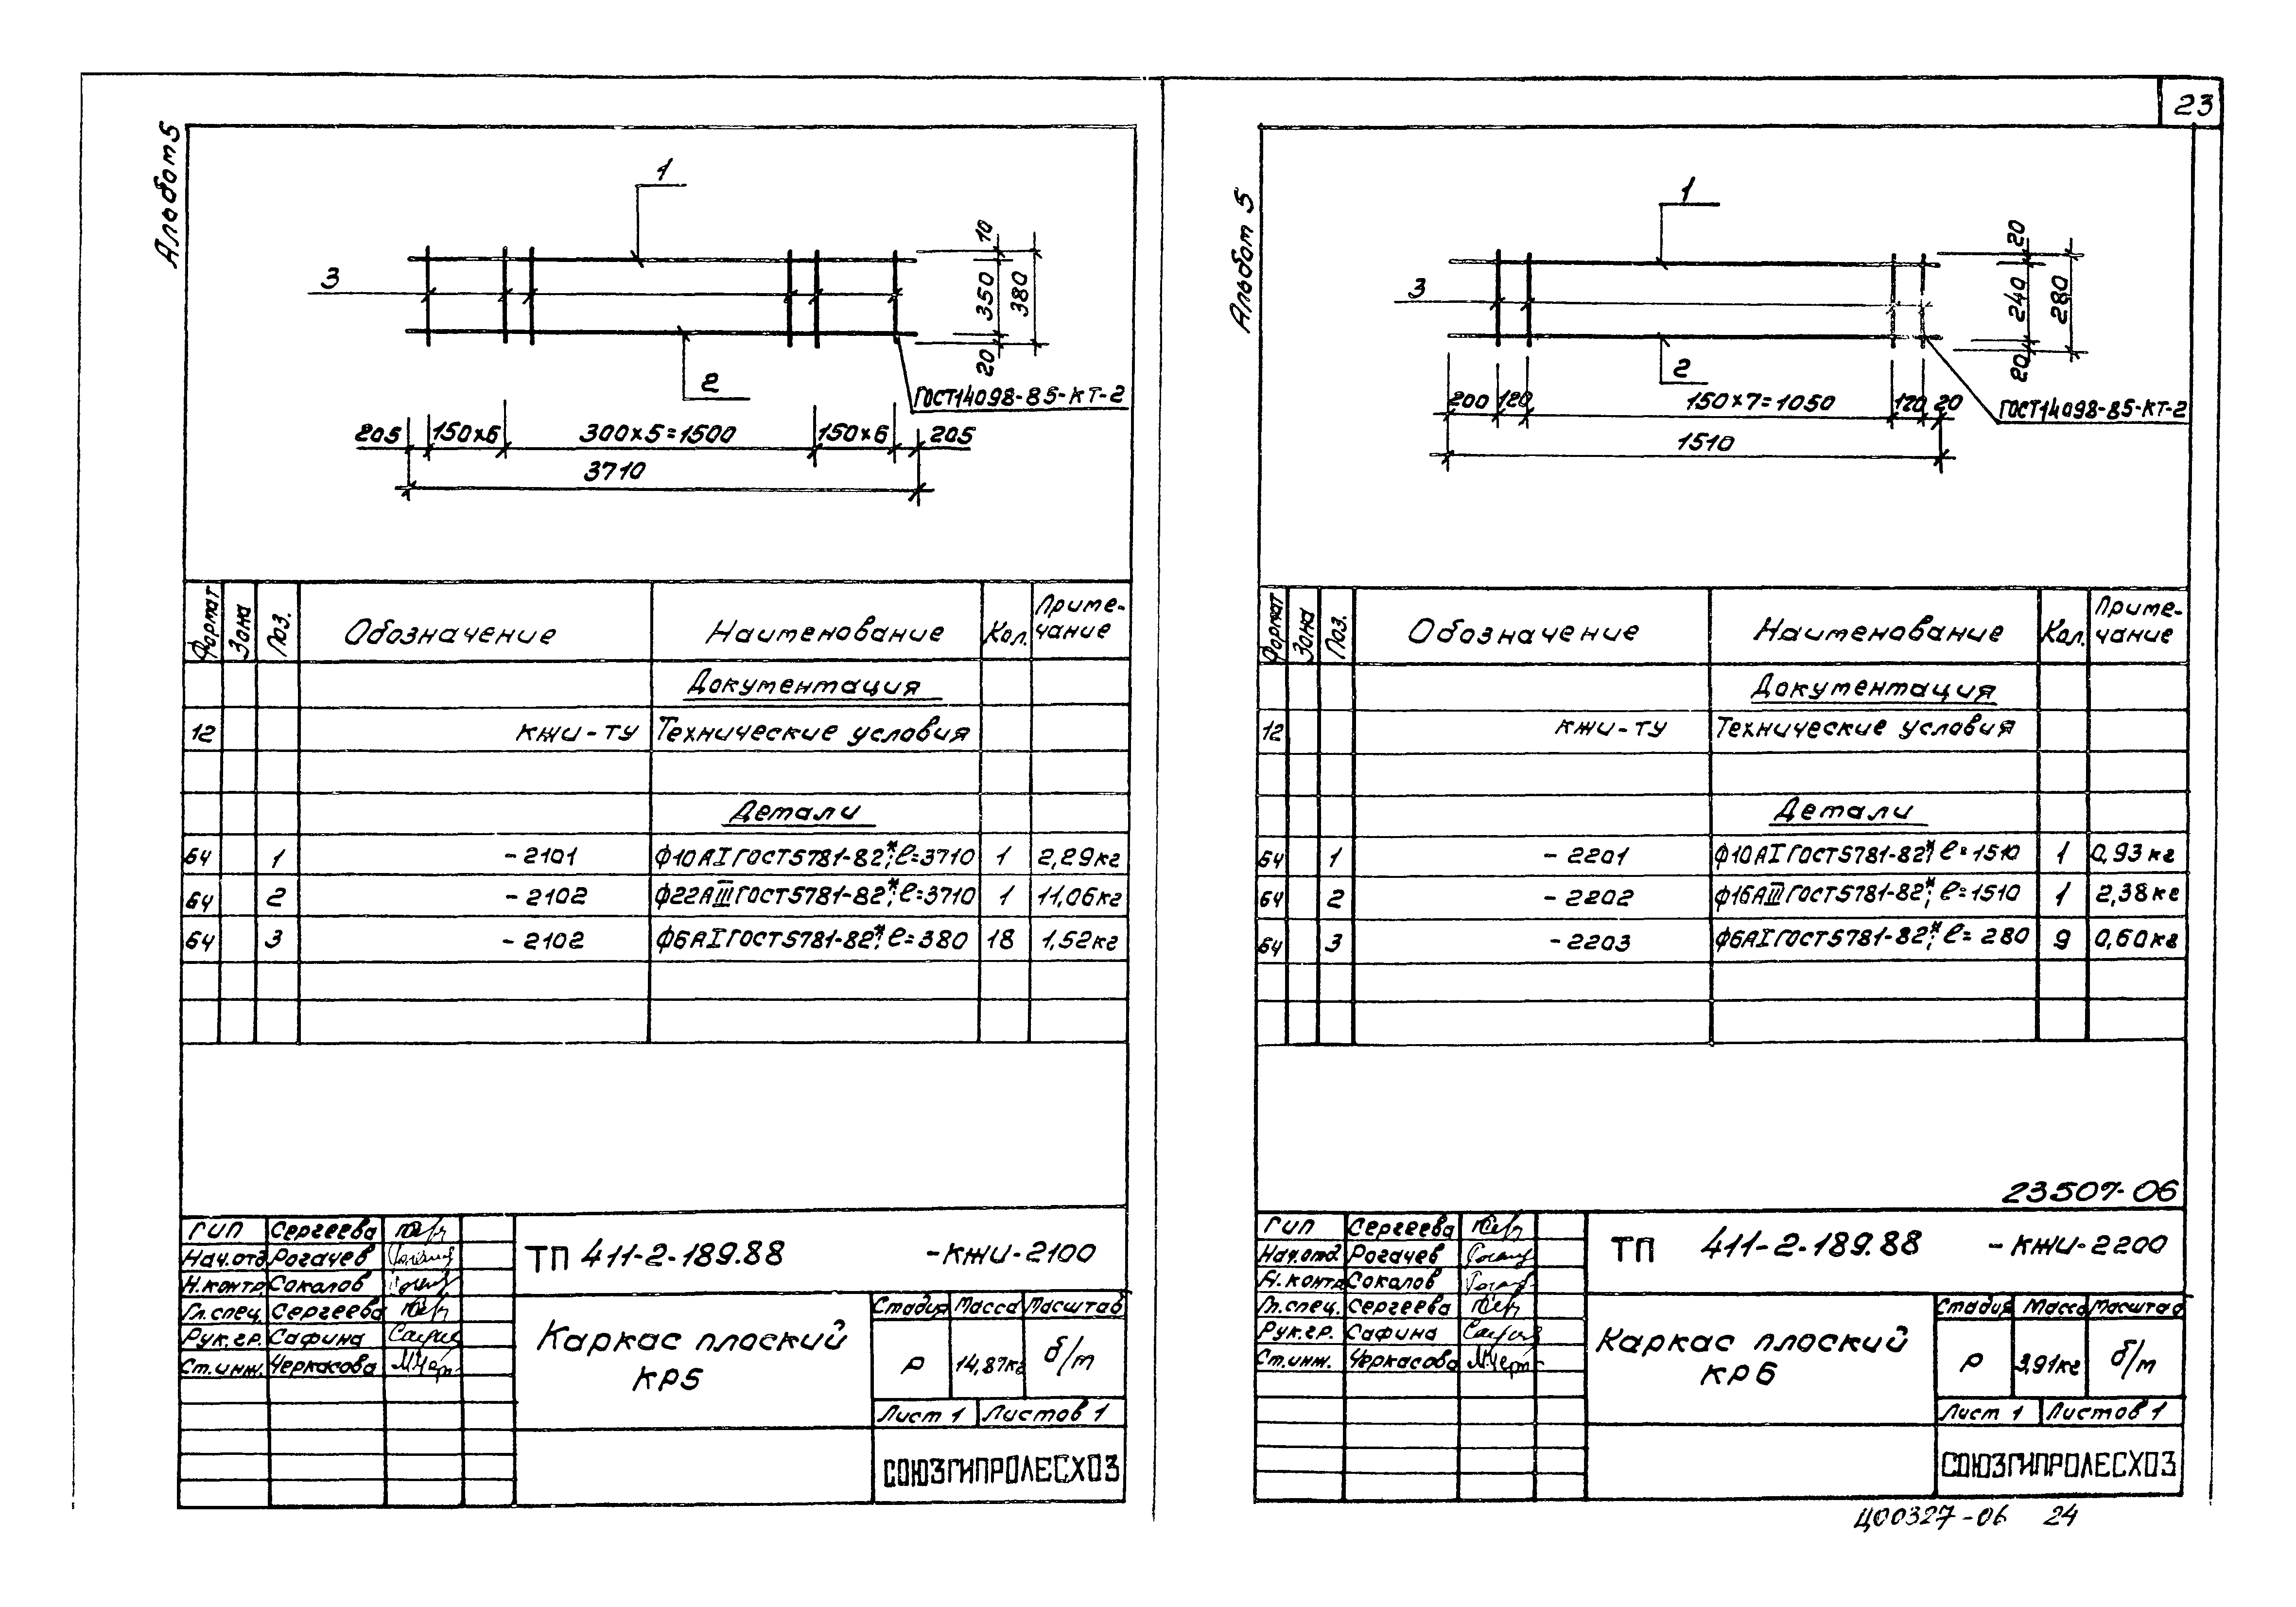 23
Альбом 5
1
3
2
10
350
20
380
ГОСТ14098-85-КТ-2
205 150×6 300×5=1500 150×6 205
3710
Формат Зона Поз. Обозначение Наименование Кол. Приме-чание
Документация
12 КЖИ-ТУ Технические условия
Детали
Б4 1 -2101 Ф10АI ГОСТ5781-82*; ℓ=3710 1 2,29кг
Б4 2 -2102 Ф22АIII ГОСТ5781-82*; ℓ=3710 1 11,06кг
Б4 3 -2102 Ф6АI ГОСТ5781-82*; ℓ=380 18 1,52кг
ГИП Сергеева
Нач.отд Рогачев
Н.контр Соколов
Гл.спец. Сергеева
Рук.гр. Сафина
Ст.инж. Черкасова
ТП 411-2-189.88 -КЖИ-2100
Каркас плоский
КР5
Стадия Масса Масштаб
Р 14,87кг б/м
Лист 1 Листов 1
СОЮЗГИПРОЛЕСХОЗ
Альбом 5
1
3
2
20
240
20
280
ГОСТ14098-85-КТ-2
200 120 150×7=1050 120 20
1510
Формат Зона Поз. Обозначение Наименование Кол. Приме-чание
Документация
12 КЖИ-ТУ Технические условия
Детали
Б4 1 -2201 Ф10АI ГОСТ5781-82*; ℓ=1510 1 0,93кг
Б4 2 -2202 Ф16АIII ГОСТ5781-82*; ℓ=1510 1 2,38кг
Б4 3 -2203 Ф6АI ГОСТ5781-82*; ℓ=280 9 0,60кг
23507-06
ГИП Сергеева
Нач.отд Рогачев
Н.контр Соколов
Гл.спец. Сергеева
Рук.гр. Сафина
Ст.инж. Черкасова
ТП 411-2-189.88 -КЖИ-2200
Каркас плоский
КР6
Стадия Масса Масштаб
Р 3,91кг б/м
Лист 1 Листов 1
СОЮЗГИПРОЛЕСХОЗ
Ц00327-06 24